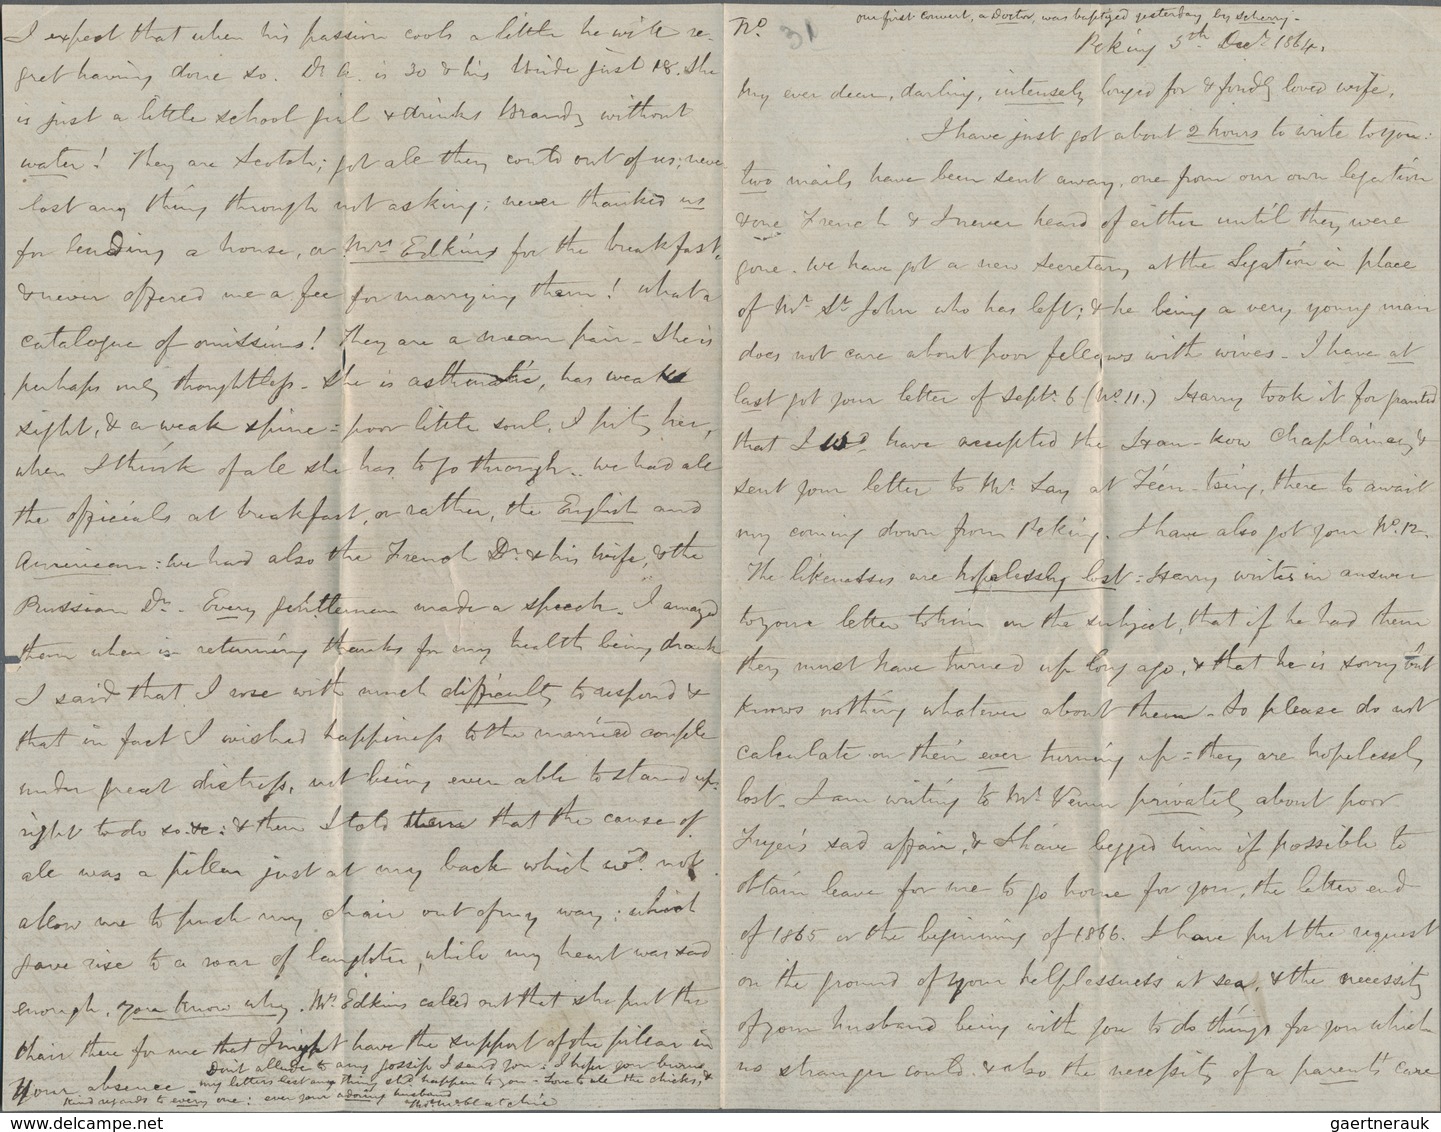 I expect that when his passion cools a little he will re-
gret having done so. Dr A. is 30 & his bride just 18. She
is just a little school girl & drinks Brandy without
water! They are Scotch; got all they could out of us; never
lost any thing through not asking; never thanked us
for lending a house, or Mrs Edkins for the breakfast,
& never offered me a fee for marrying them! what a
catalogue of omissions! They are a mean pair - She is
perhaps only thoughtless - she is asthmatic, has weak
sight, & a weak spine = poor little soul, I pity her,
when I think of all she has to go through - we had all
the officials at breakfast, or rather, the English and
American: we had also the French Dr & his wife, & the
Prussian Dr - Every gentleman made a speech. I amazed
them when in returning thanks for my health being drank
I said that I rose with much difficulty to respond &
that in fact I wished happiness to the married couple
under great distress, not being even able to stand up-
right to do so &c: & then I told them that the cause of
all was a pillar just at my back which wd. not
allow me to push my chair out of my way: which
gave rise to a roar of laughter, while my heart was sad
enough, you know why. Mrs Edkins called out that she put the
chair there for me that I might have the support of the pillar in
Your absence -
Don't allude to any gossip I send you: I hope you burn
my letters lest any thing shd happen to you - Love to all the chicks, &
kind regards to every one: ever your adoring husband
Thos McClatchie
our first convert, a Doctor, was baptized yesterday by Scherry.
No. 31
Peking 5th Decr 1864.
My ever dear, darling, intensely longed for & fondly loved wife,
I have just got about 2 hours to write to you:
two mails have been sent away, one from our own legation
& one French & I never heard of either until they were
gone. We have got a new Secretary at the Legation in place
of Mr St John who has left; & he being a very young man
does not care about poor fellows with wives - I have at
last got your letter of Septr 6 (No. 11.) Harry took it for granted
that I wd have accepted the Han-kow Chaplaincy &
sent your letter to Mr Lay at Téen-tsing, there to await
my coming down from Peking. I have also got your No. 12.
The likenesses are hopelessly lost: Harry writes in answer
to your letter to him on the subject, that if he had them
they must have turned up long ago, & that he is sorry but
knows nothing whatever about them - So please do not
calculate on their ever turning up = they are hopelessly
lost. I am writing to Mr Venn privately about poor
Fryer's sad affair, & I have begged him if possible to
obtain leave for me to go home for you, the latter end
of 1865 or the beginning of 1866. I have put the request
on the ground of your helplessness at sea, & the necessity
of your husband being with you to do things for you which
no stranger could. & also the necessity of a parent's care
gaertnerauk